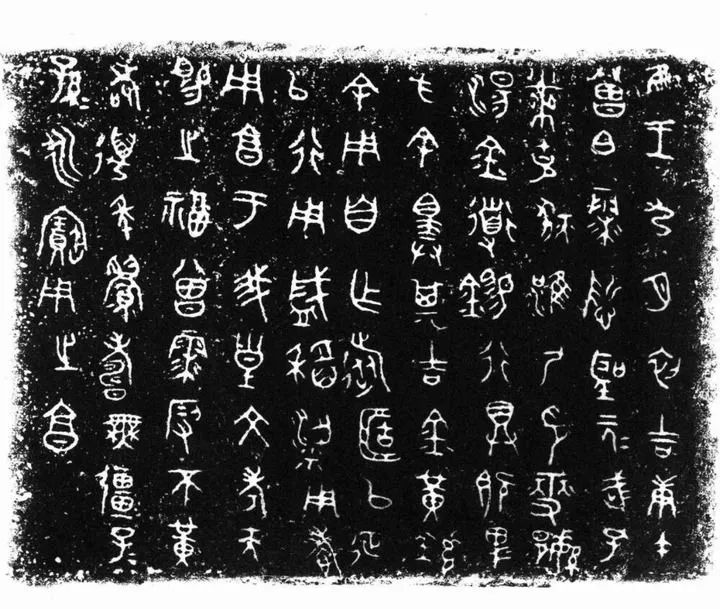 隹王九月初吉庚午
曾白霖哲聖元武孔
黹克狄淮尸印燮繁
湯金道錫行具既卑
方余擇其吉金黃鑪
余用自乍旅𠤳以征
以行用盛稻粱用孝
用亯于我皇文考天
賜之福曾霖叚不黃
耇萬年眉壽無疆子
孫永寶用之亯